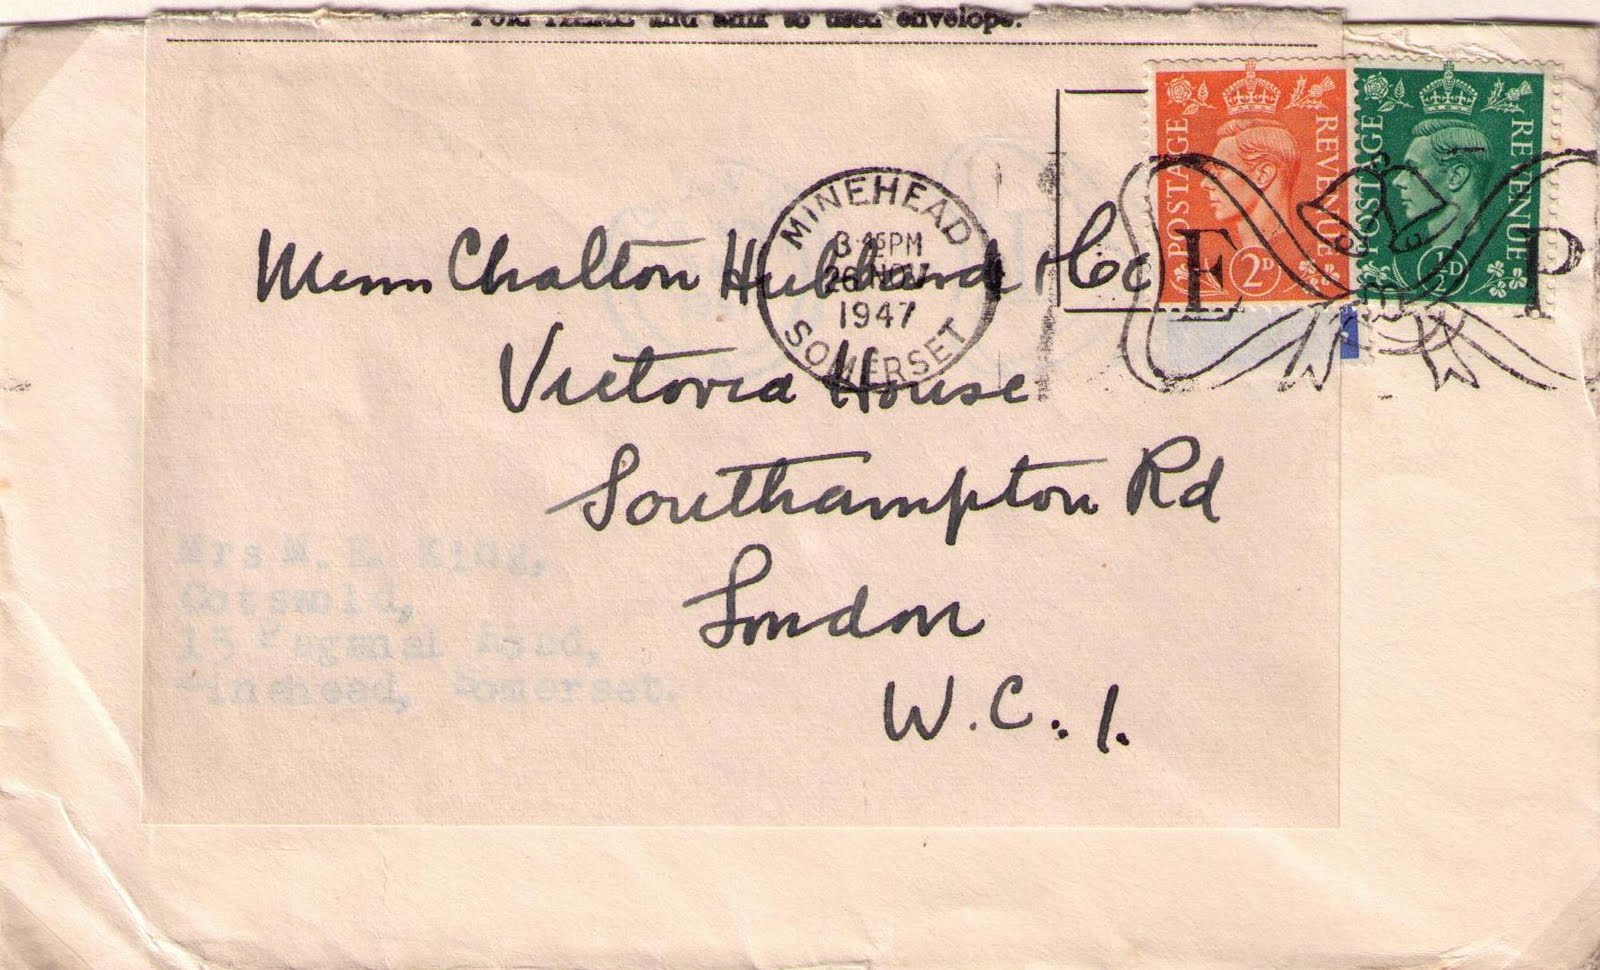 Fold HERE and affix to used envelope.
POSTAGE REVENUE
2D
POSTAGE REVENUE
½D
E P
MINEHEAD
3 45 PM
26 NOV
1947
SOMERSET
Messrs Chalton Hubbard & Co
Victoria House
Southampton Rd
London
W.C.1.
Mrs M. E. King,
Cotswold,
15 Paganel Road,
Minehead, Somerset.